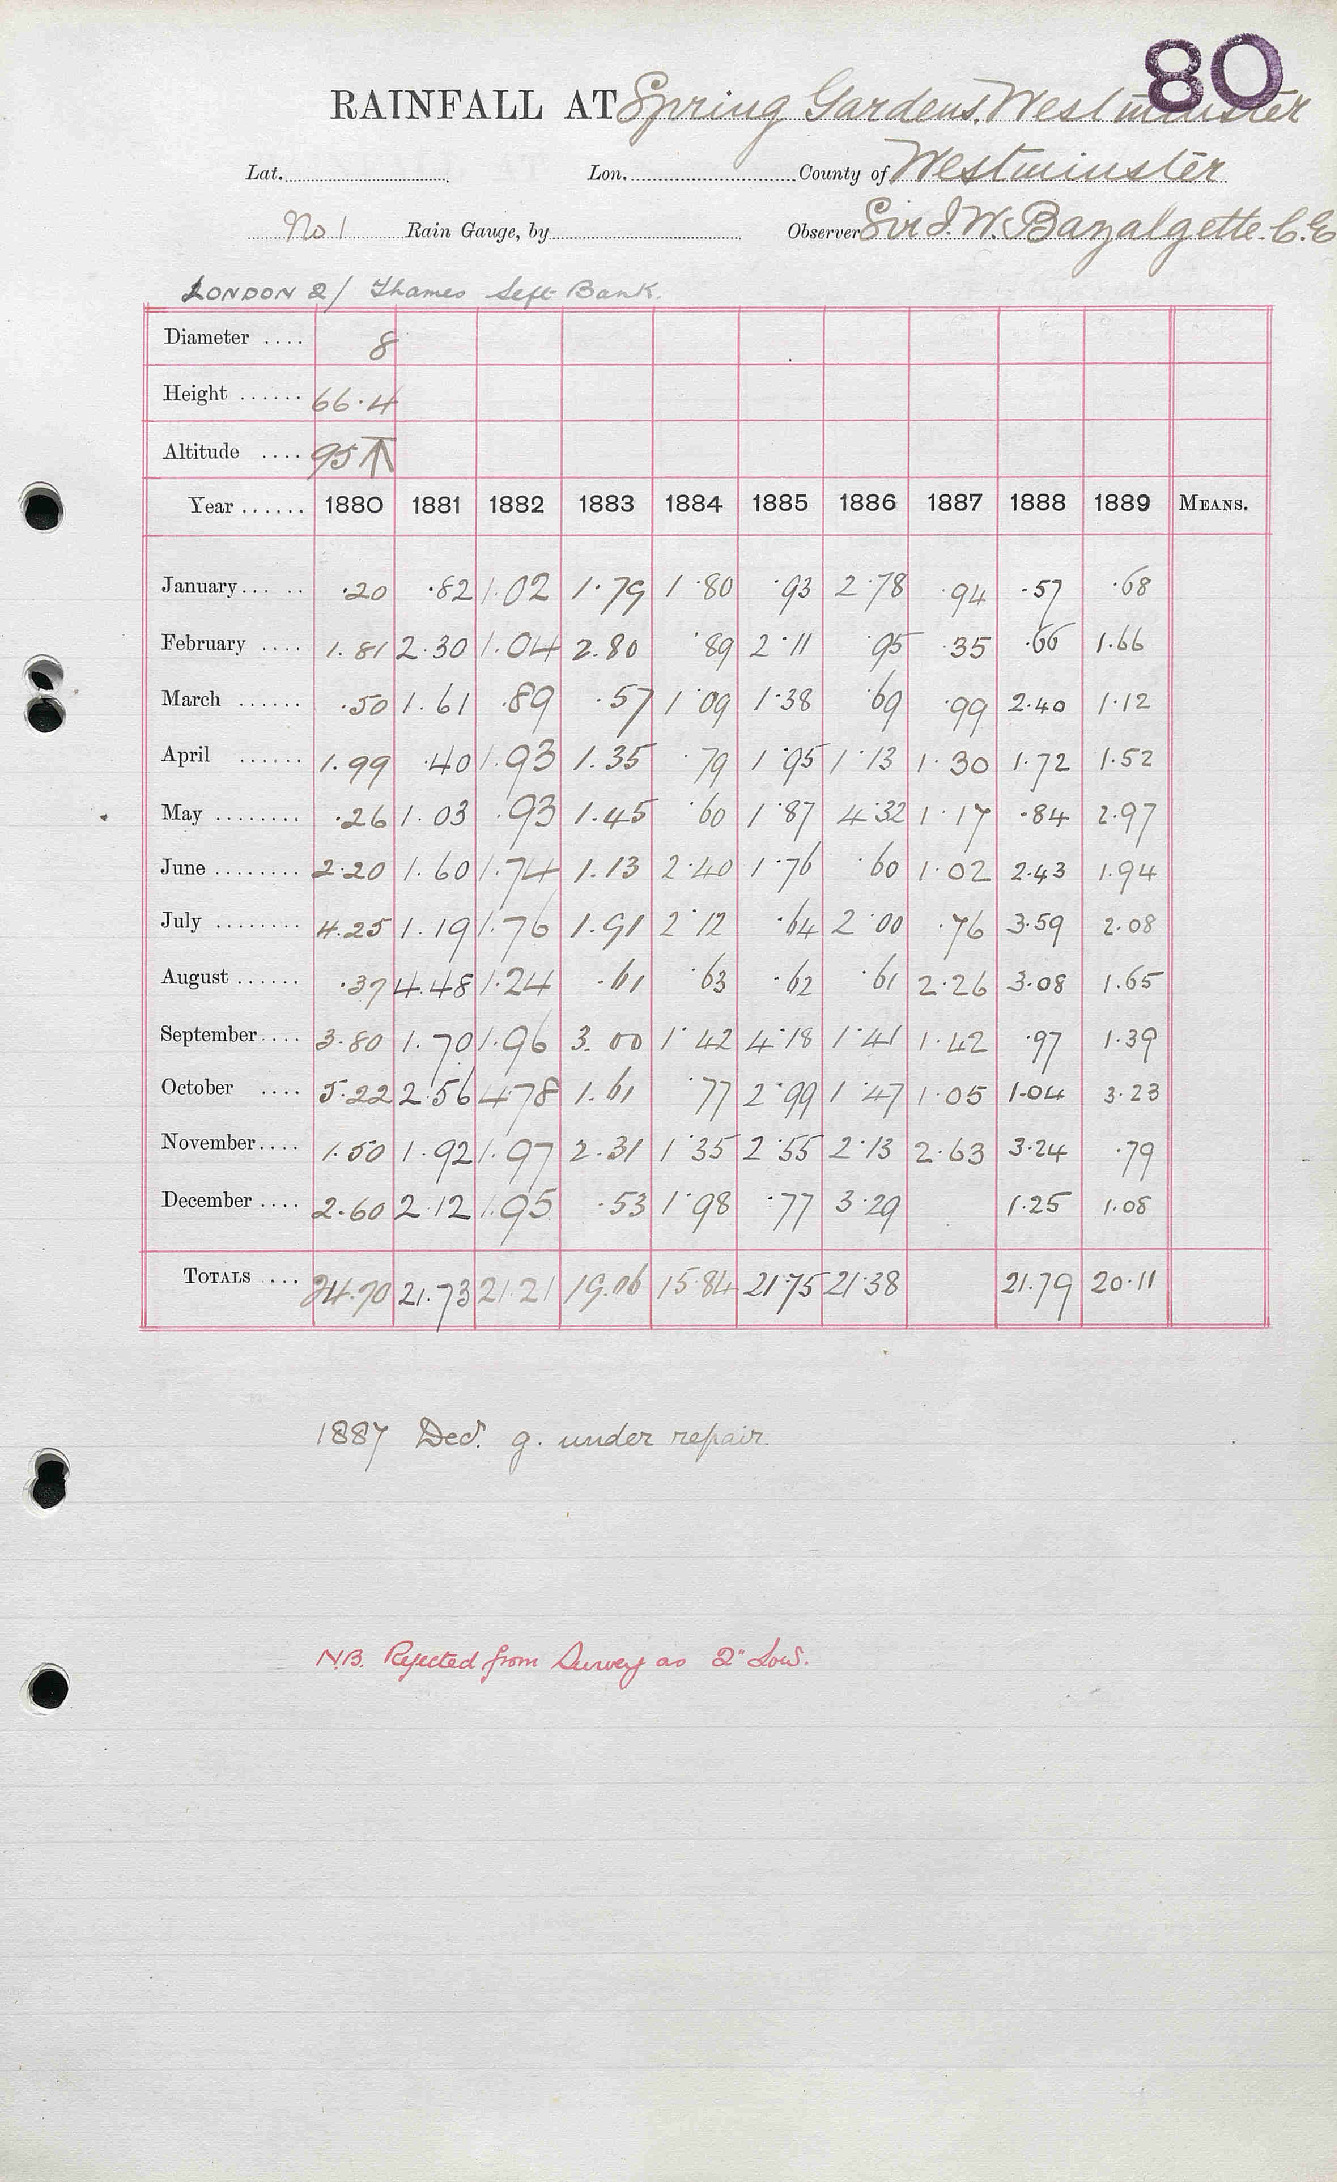 80
RAINFALL AT Spring Gardens, Westminster
Lat. Lon. County of Westminster
No 1 Rain Gauge, by Observer Sir J. W. Bazalgette. C.E
LONDON 2/ Thames Left Bank.
Diameter .... 8
Height ...... 66.4
Altitude .... 95 ↑
Year ...... 1880 1881 1882 1883 1884 1885 1886 1887 1888 1889 MEANS.
January... .. .20 .82 1.02 1.79 1.80 .93 2.78 .94 .57 .68
February .... 1.81 2.30 1.04 2.80 .89 2.11 .95 .35 .66 1.66
March ...... .50 1.61 .89 .57 1.09 1.38 .69 .99 2.40 1.12
April ...... 1.99 .40 1.93 1.35 .79 1.95 1.13 1.30 1.72 1.52
May ........ .26 1.03 .93 1.45 .60 1.87 4.32 1.17 .84 2.97
June ........ 2.20 1.60 1.74 1.13 2.40 1.76 .60 1.02 2.43 1.94
July ........ 4.25 1.19 1.76 1.91 2.12 .64 2.00 .76 3.59 2.08
August ...... .37 4.48 1.24 .61 .63 .62 .61 2.26 3.08 1.65
September.... 3.80 1.70 1.96 3.00 1.42 4.18 1.41 1.42 .97 1.39
October .... 5.22 2.56 4.78 1.61 .77 2.99 1.47 1.05 1.04 3.23
November.... 1.50 1.92 1.97 2.31 1.35 2.55 2.13 2.63 3.24 .79
December .... 2.60 2.12 1.95 .53 1.98 .77 3.29 1.25 1.08
TOTALS ... 24.70 21.73 21.21 19.06 15.84 21.75 21.38 21.79 20.11
1887 Dec. g. under repair
N.B. Rejected from Survey as 2" Low.